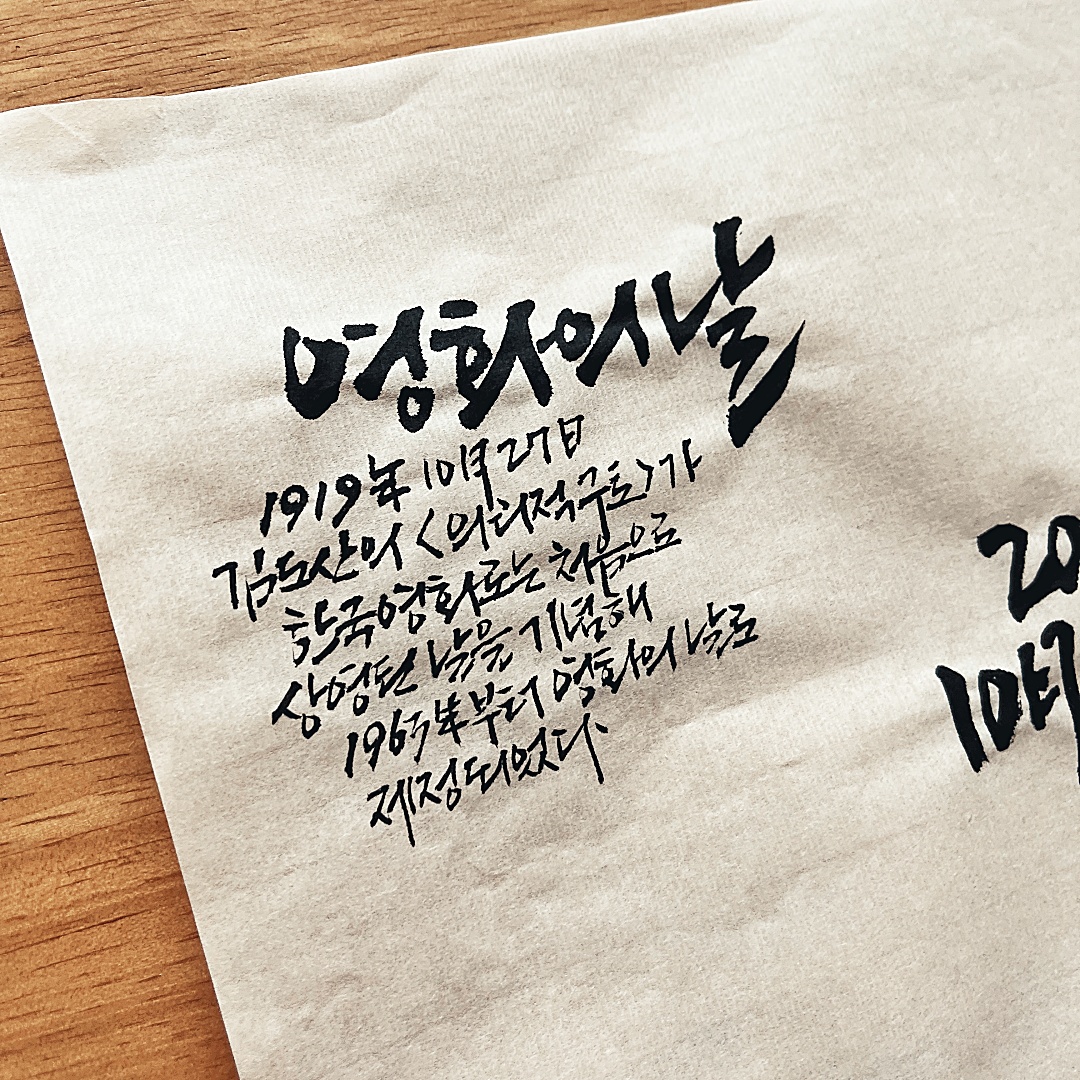 영화의 날
1919年 10月 27日
김도산의 <의리적 구토>가
한국영화로는 처음으로
상영된 날을 기념해
1963年부터 영화의 날로
제정되었다.
20
10月